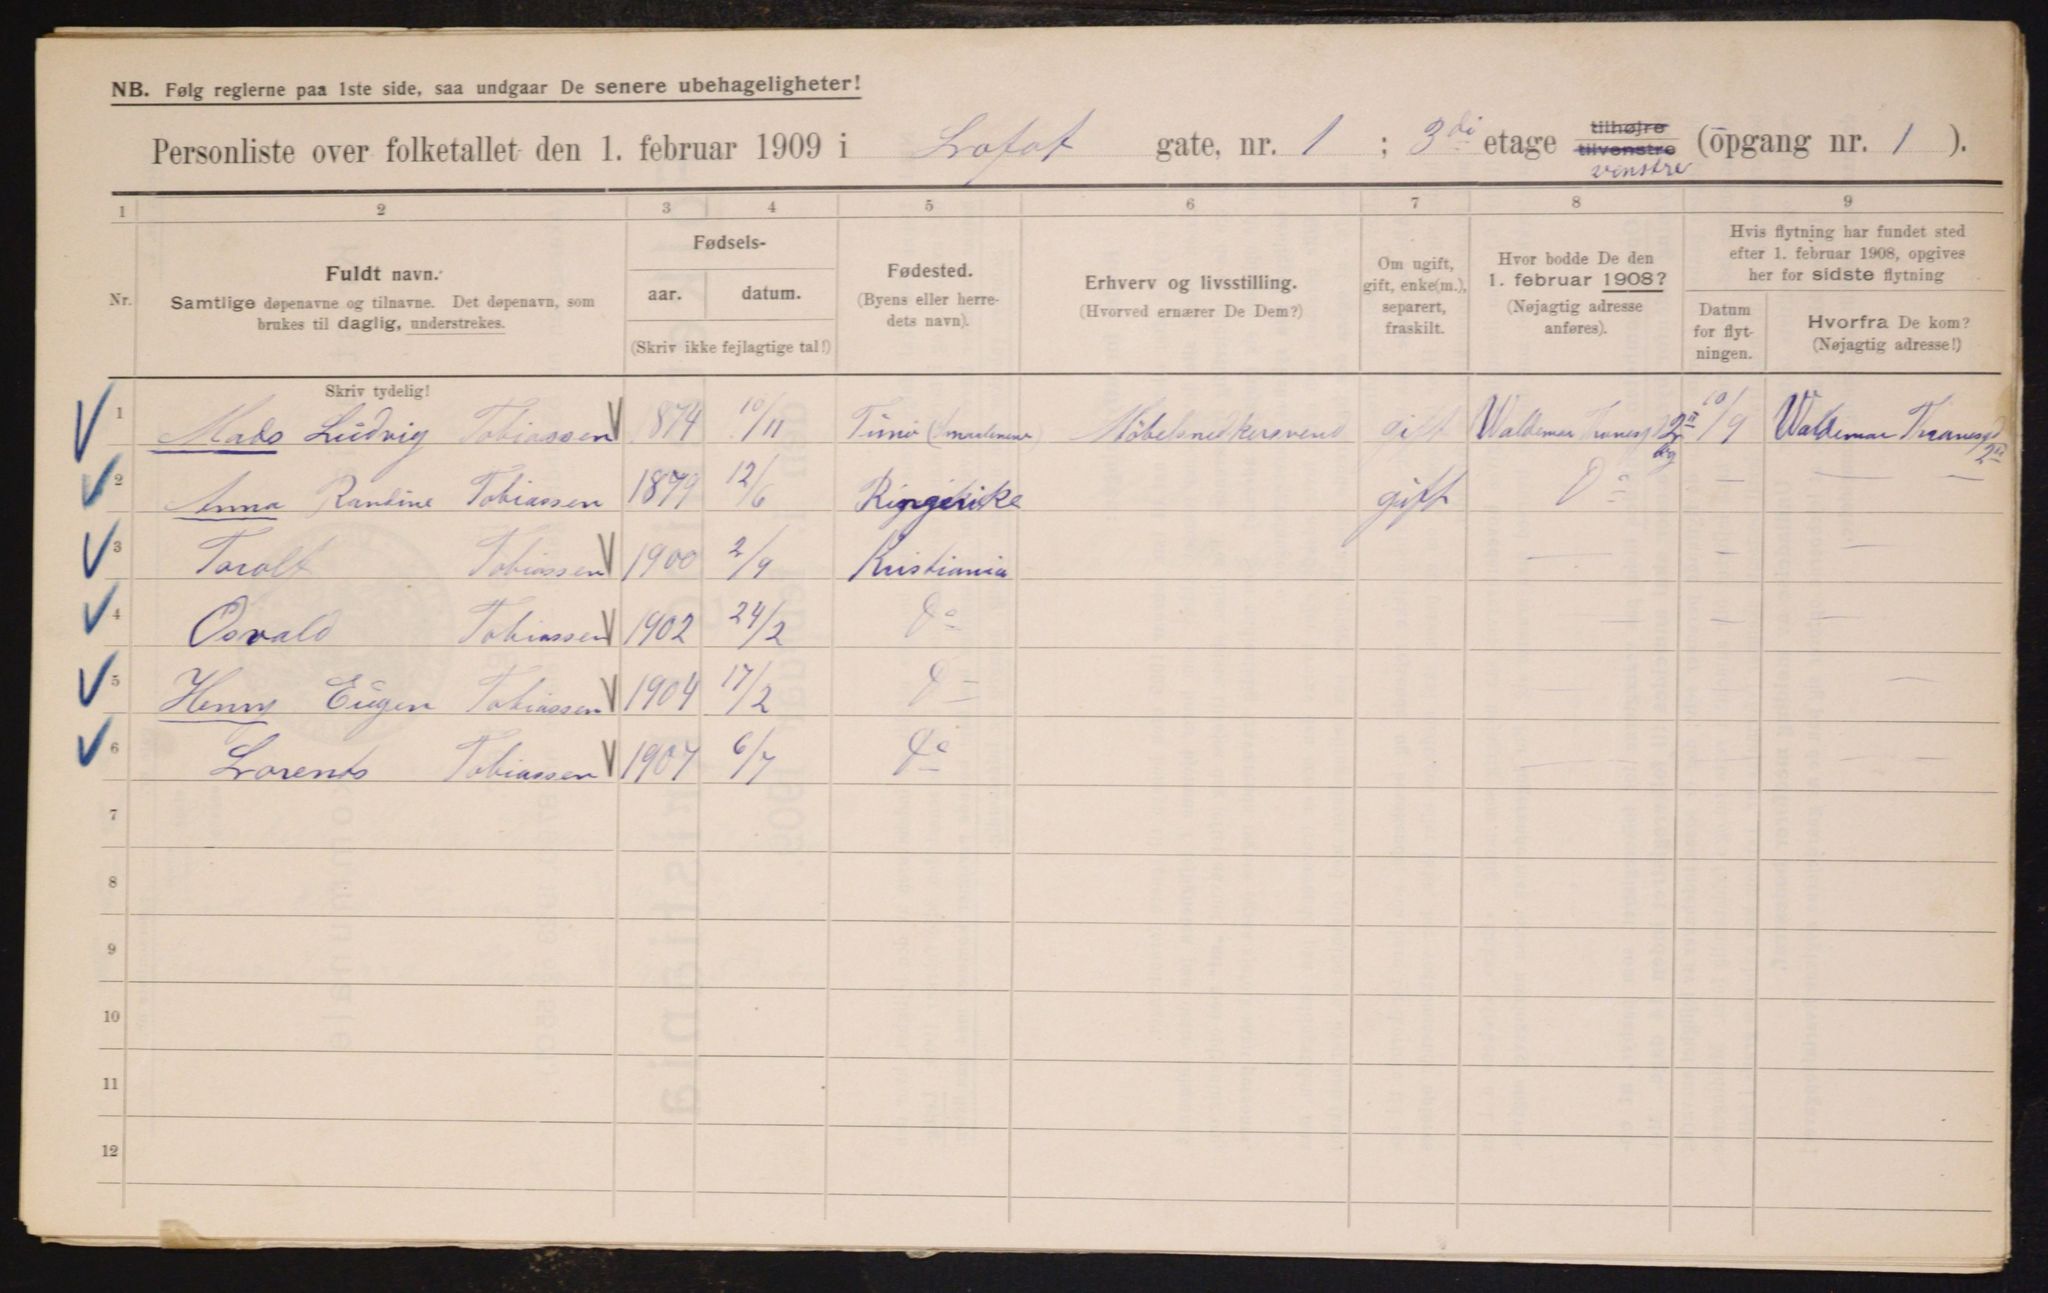 NB. Følg reglerne paa 1ste side, saa undgaar De senere ubehageligheter!
Personliste over folketallet den 1. februar 1909 i Lofot gate, nr. 1 ; 3di etage tilhøjre tilvenstre venstre (opgang nr. 1 ).
1 2 3 4 5 6 7 8 9
Nr.
Fuldt navn.
Samtlige døpenavne og tilnavne. Det døpenavn, som
brukes til daglig, understrekes.
Skriv tydelig!
Fødsels-
aar. datum.
(Skriv ikke fejlagtige tal!)
Fødested.
(Byens eller herre-
dets navn).
Erhverv og livsstilling.
(Hvorved ernærer De Dem?)
Om ugift,
gift, enke(m.),
separert,
fraskilt.
Hvor bodde De den
1. februar 1908?
(Nøjagtig adresse
anføres).
Hvis flytning har fundet sted
efter 1. februar 1908, opgives
her for sidste flytning
Datum
for flyt-
ningen.
Hvorfra De kom?
(Nøjagtig adresse!)
1 Mads Ludvig Tobiassen 1874 10/11 Tunø (Smaalenene) Møbelsnedkersvend gift Waldemar Tranesg 10/9 Waldemar Tranesgd
2 Anna Randine Tobiassen 1879 12/6 Ringerike gift Do — — —
3 Toralf Tobiassen 1900 2/9 Kristiania — — —
4 Osvald Tobiassen 1902 24/2 do — — —
5 Henry Eugen Tobiassen 1904 17/2 d — — —
6 Lorents Tobiassen 1907 6/7 do — — — —
7
8
9
10
11
12